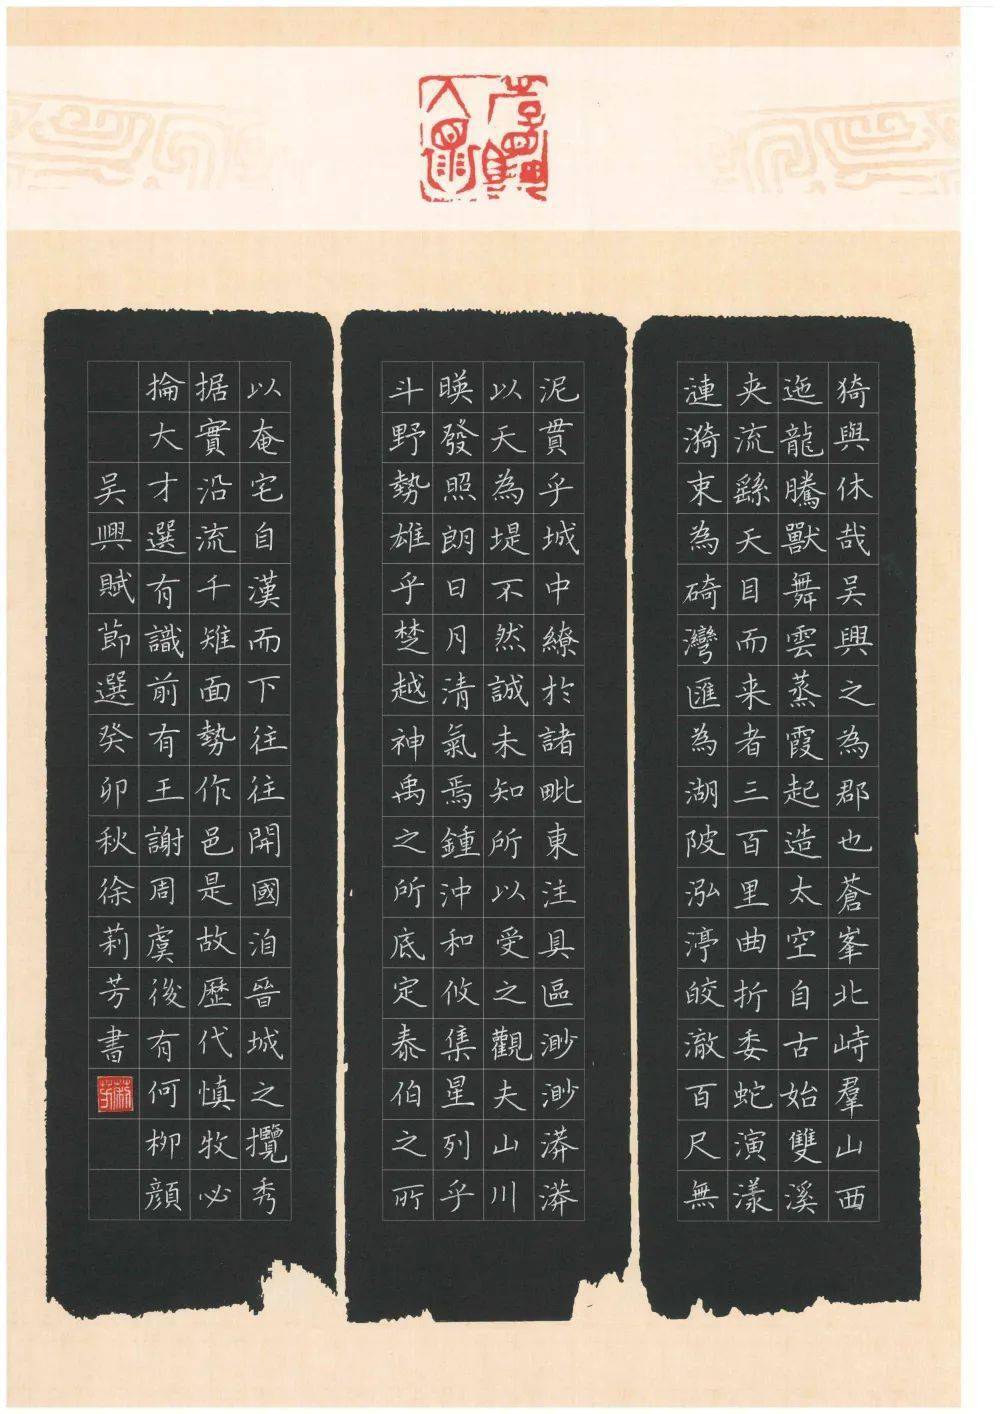 猗與休哉吳興之為郡也蒼峯北峙羣山西
迤龍騰獸舞雲蒸霞起造太空自古始雙溪
夾流繇天目而来者三百里曲折委蛇演漾
漣漪束為碕灣匯為湖陂泓渟皎澈百尺無
泥貫乎城中繚於諸毗東注具區渺渺漭漭
以天為堤不然誠未知所以受之觀夫山川
暎發照朗日月清氣焉鍾沖和攸集星列乎
斗野勢雄乎楚越神禹之所底定泰伯之所
以奄宅自漢而下往往開國洎晉城之攬秀
据實沿流千雉面勢作邑是故歷代慎牧必
掄大才選有識前有王謝周虞後有何柳顔
吳興賦節選癸卯秋徐莉芳書